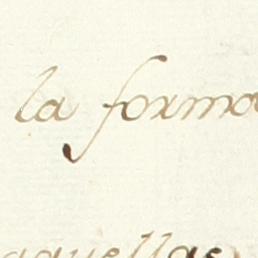 la forma
aquellas